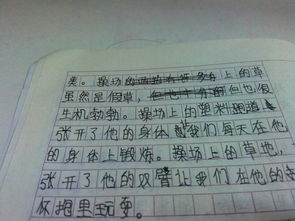 美。操场的上的草
虽然是假草，但也很
生机勃勃。操场上的塑料跑道
张开了他的身体让我们每天在他
的身体上锻炼。操场上的草地，
张开了他的双臂让我们在他的
怀抱里玩耍。